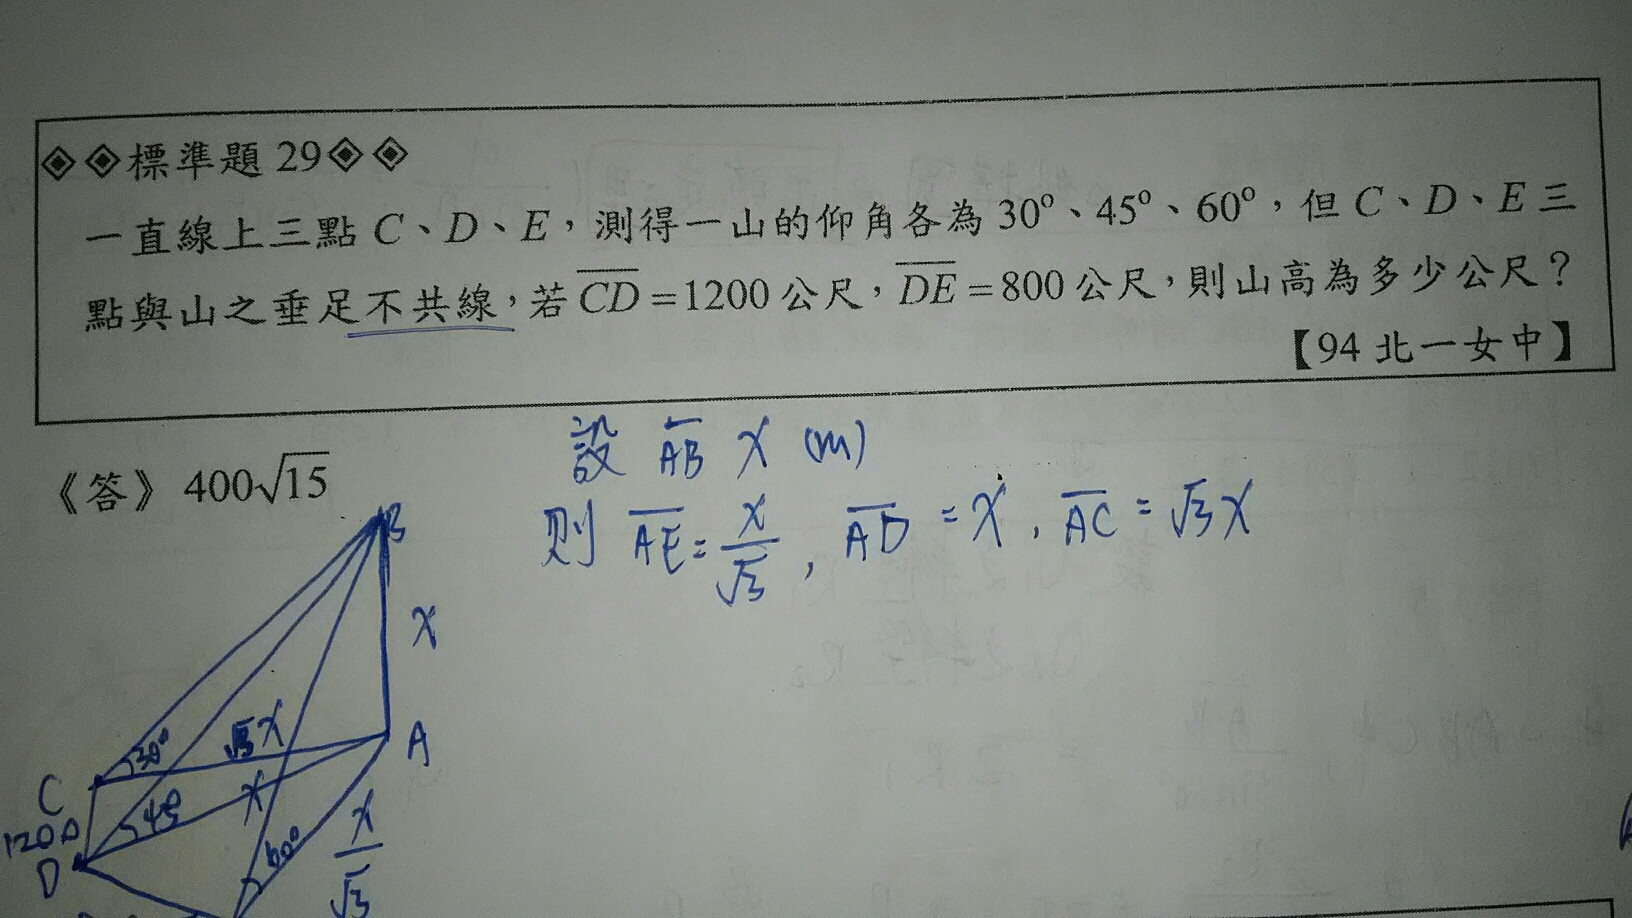 ◈◈標準題 29◈◈
一直線上三點 C、D、E，測得一山的仰角各為 30°、45°、60°，但 C、D、E 三
點與山之垂足不共線，若 CD = 1200 公尺，DE = 800 公尺，則山高為多少公尺？
【94 北一女中】
設 AB x (m)
《答》400√15
則 AE = x/√3 , AD = x , AC = √3x
B
x
A
√3x
30°
C
x
45°
1200
D
60°
x/√3